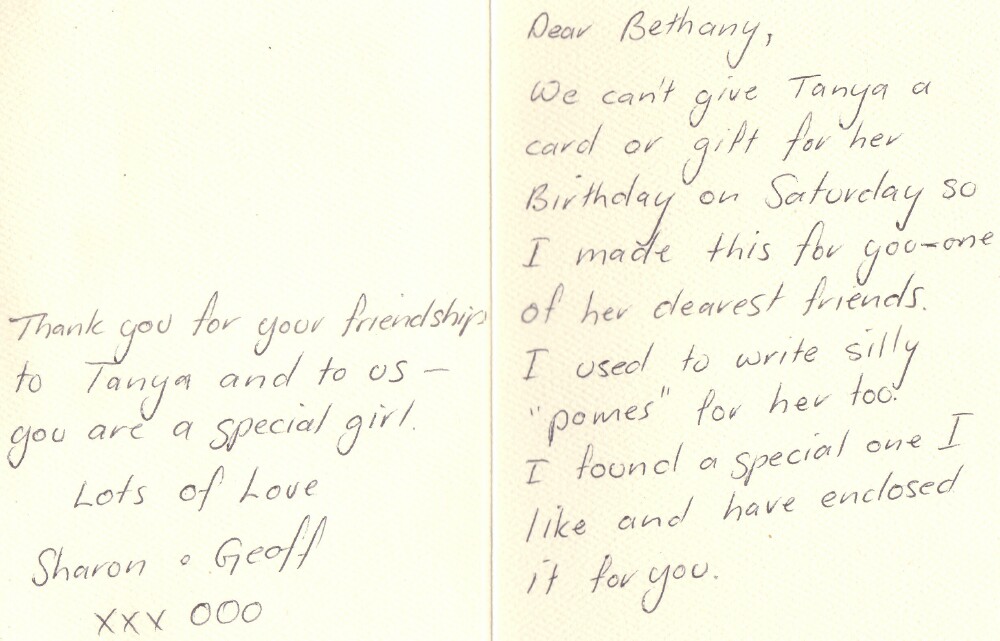 Dear Bethany,
We can't give Tanya a
card or gift for her
Birthday on Saturday so
I made this for you-one
of her dearest friends.
I used to write silly
"pomes" for her too.
I found a special one I
like and have enclosed
it for you.
Thank you for your friendship
to Tanya and to us -
you are a special girl.
Lots of Love
Sharon & Geoff
xxx OOO